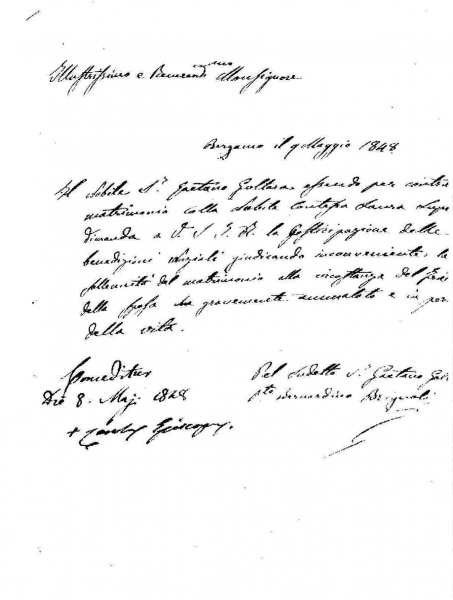 Illustrissimo e Reverendissimo Monsignore
Bergamo il 9 Maggio 1848
Il Nobile Sr. Gaetano essendo per contra
matrimonio colla Nobile Contessa Laura
dimanda a V. S. I. R. la posticipazione delle
benedizioni nuziali giudicando inconveniente la
sollennità del matrimonio alla circostanza del
della sposa ora gravemente ammalato e in per
della vita.
Conceditur
Die 8. Maj. 1848
+ Episcopus.
Pel sudetto Sr. Gaetano
Bernardino Brignoli